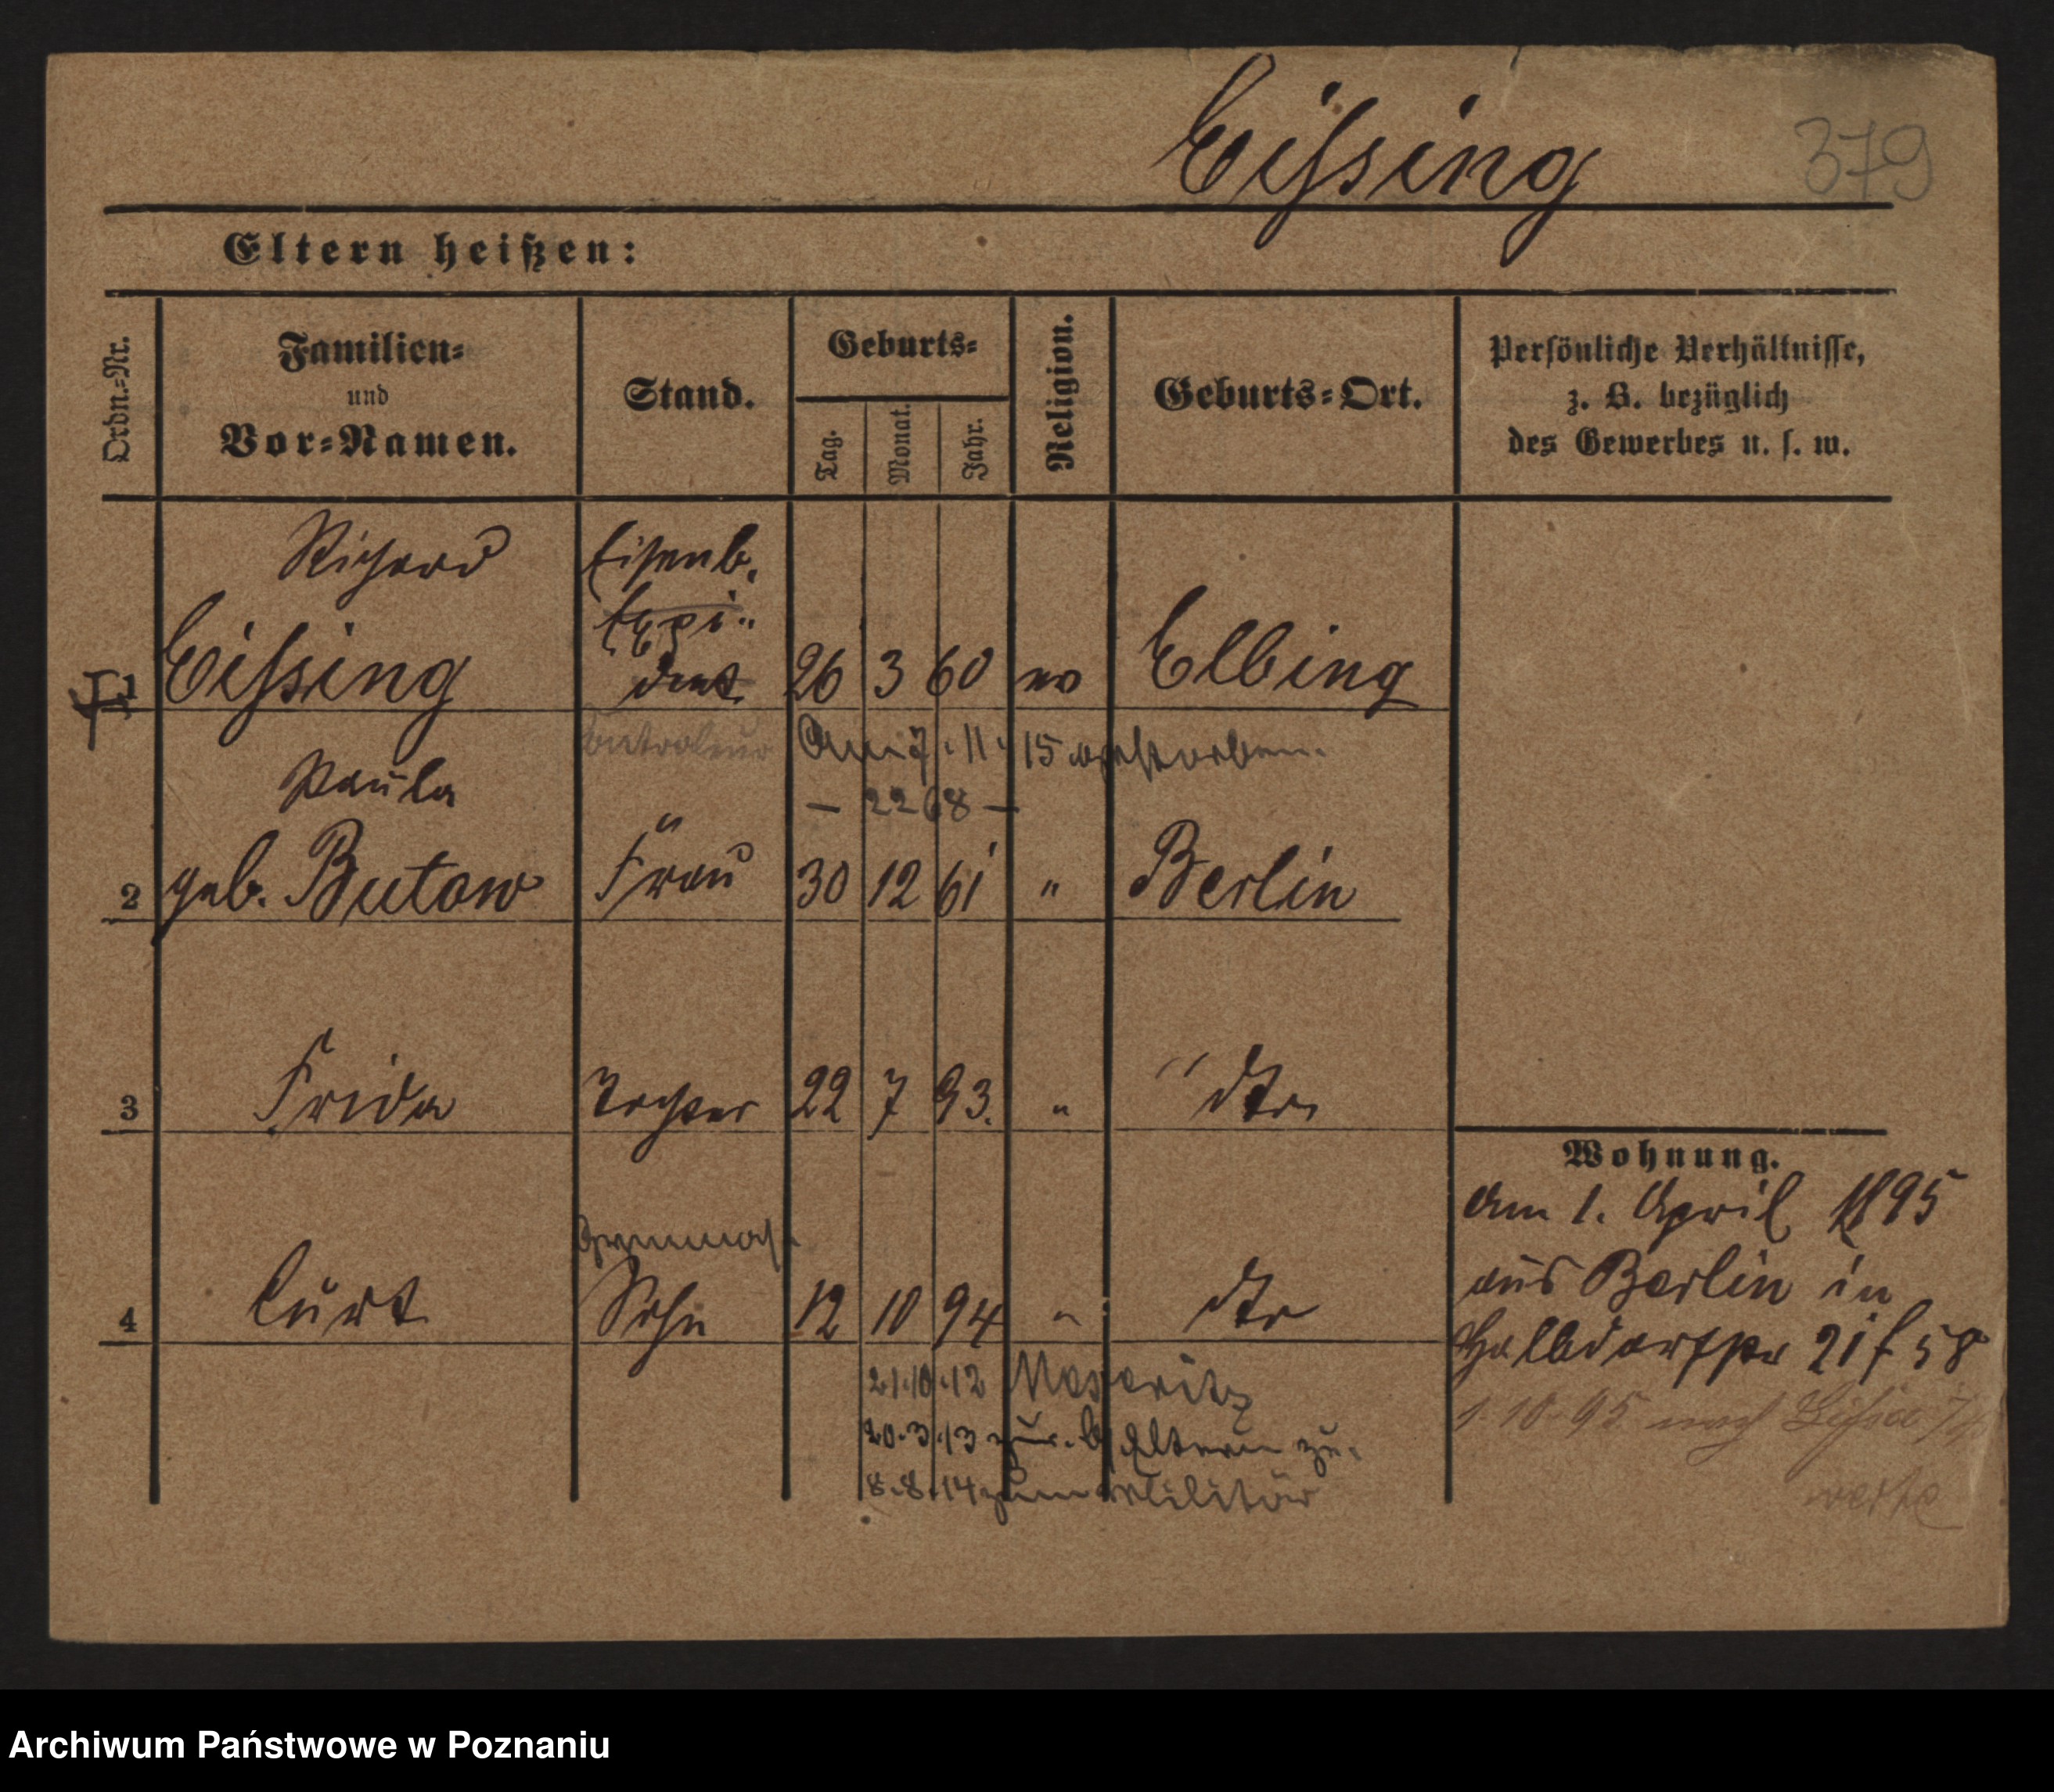 Eissing
379
Eltern heißen:
Ordn.-Nr.
Familien-
und
Vor-Namen.
Stand.
Geburts-
Tag.
Monat.
Jahr.
Religion.
Geburts-Ort.
Persönliche Verhältnisse,
z. B. bezüglich
des Gewerbes u. s. w.
Richard Eisenb.
Expi-
1 Eissing dent 26 3 60 ev Elbing
Controleur Am 7.11.15 gestorben.
Paula — 2268 —
2 geb. Butow Frau 30 12 61 " Berlin
3 Frida Tochter 22 7 93. " dto
Gymnas.
4 Curt Sohn 12 10 94 " dto
21.10.12 Meseritz
20.3.13 zur. Eltern zu.
8.8.14 zum Militär
Wohnung.
Am 1. April 1895
aus Berlin in
Halbdorfstr 21 f 58
1.10.95 nach Lissa
Archiwum Państwowe w Poznaniu